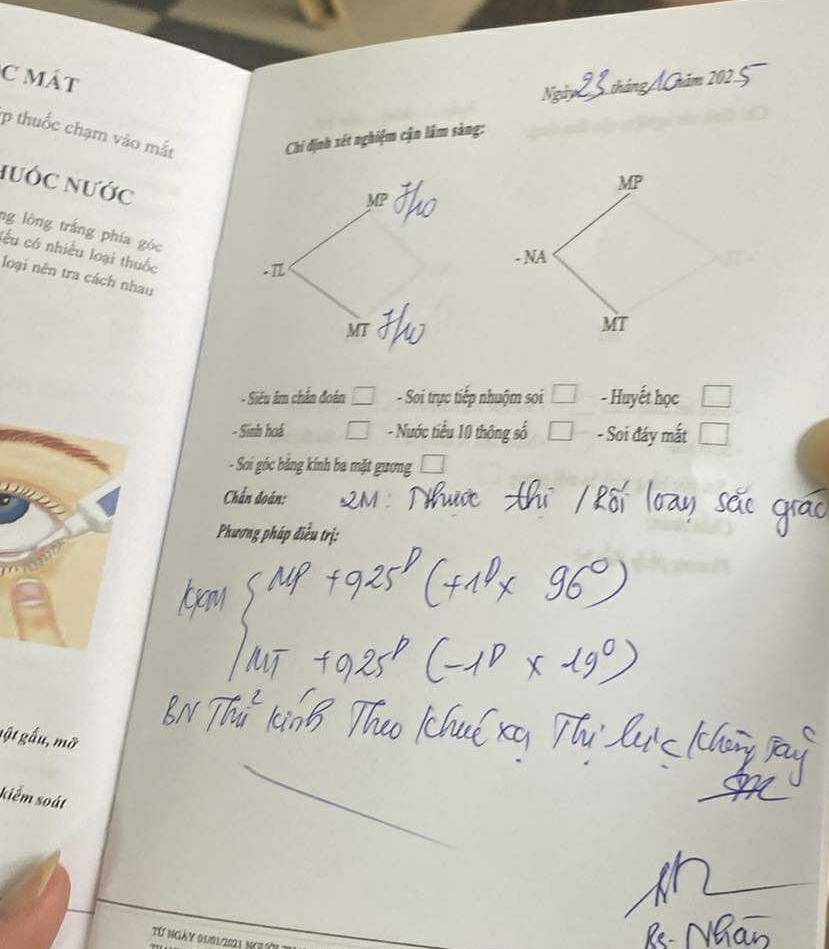 C MẮT
p thuốc chạm vào mắt
HUỐC NƯỚC
ng lòng trắng phía góc
ếu có nhiều loại thuốc
loại nên tra cách nhau
ật gấu, mỡ
kiểm soát
Ngày 23 tháng 10 năm 2025
Chỉ định xét nghiệm cận lâm sàng:
MP
- TL
MT
MP
- NA
MT
- Siêu âm chẩn đoán - Soi trực tiếp nhuộm soi - Huyết học
- Sinh hoá - Nước tiểu 10 thông số - Soi đáy mắt
- Soi góc bằng kính ba mặt gương
Chẩn đoán: 2M: Nhược thị / Rối loạn sắc giác
Phương pháp điều trị:
MP +0,25D (+1D x 96°)
MT +0,25D (-1D x 19°)
BN Thử kính Theo khúc xạ Thị lực không
Bs. Nhãn
TỪ NGÀY 01/01/2021